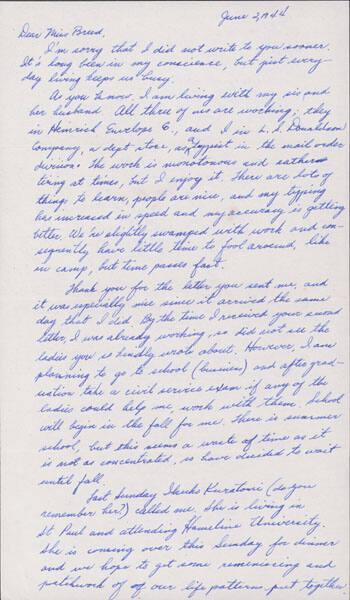 June 2, 1944
Dear Miss Breed,
I'm sorry that I did not write to you sooner.
It's long been in my conscience, but just every-
day living keeps us busy.
As you know, I am living with my sis and
her husband. All three of us are working; they
in Heinrich Envelope Co., and I in L. S. Donaldson
Company, a dept store, as a typist in the mail order
division. The work is monotonous and rather
tiring at times, but I enjoy it. There are lots of
things to learn, people are nice, and my typing
has increased in speed and my accuracy is getting
better. We're slightly swamped with work and con-
sequently have little time to fool around, like
in camp, but time passes fast.
Thank you for the letter you sent me, and
it was especially nice since it arrived the same
day that I did. By the time I received your second
letter, I was already working, so did not see the
ladies you so kindly wrote about. However, I am
planning to go to school (business) and after grad-
uation take a civil service exam if any of the
ladies could help me, work with them. School
will begin in the fall for me. There is summer
school, but this seems a waste of time as it
is not as concentrated, so have decided to wait
until fall.
Last Sunday (do you
remember her?) called me. She is living in
St Paul and attending Hamline University.
She is coming over this Sunday for dinner
and we hope to get some reminiscing and
patchwork of of our life patterns put together